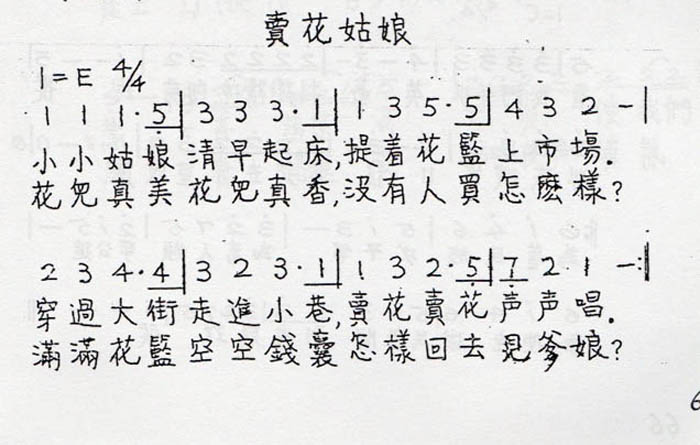 賣花姑娘
1=E 4/4
1 1 1· 5| 3 3 3· 1| 1 3 5· 5| 4 3 2 —|
小小姑娘清早起床,提着花籃上市場.
花兒真美花兒真香,沒有人買怎麽樣?
2 3 4· 4| 3 2 3· 1| 1 3 2· 5| 7 2 1 —:|
穿過大街走進小巷,賣花賣花声声唱.
滿滿花籃空空錢囊怎樣回去見爹娘?
6